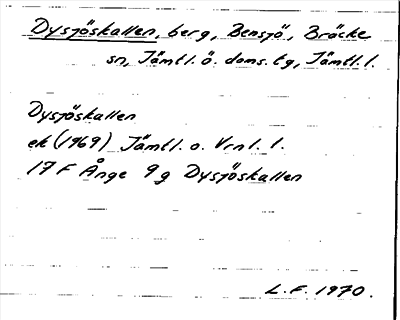 Dysjöskallen, berg, Bensjö, Bräcke
sn, Jämtl. ö. doms. tg, Jämtl. l.
Dysjöskallen
ek (1969) Jämtl. o. Vrnl. l.
17 F Ånge 9 g Dysjöskallen
L.F. 1970.